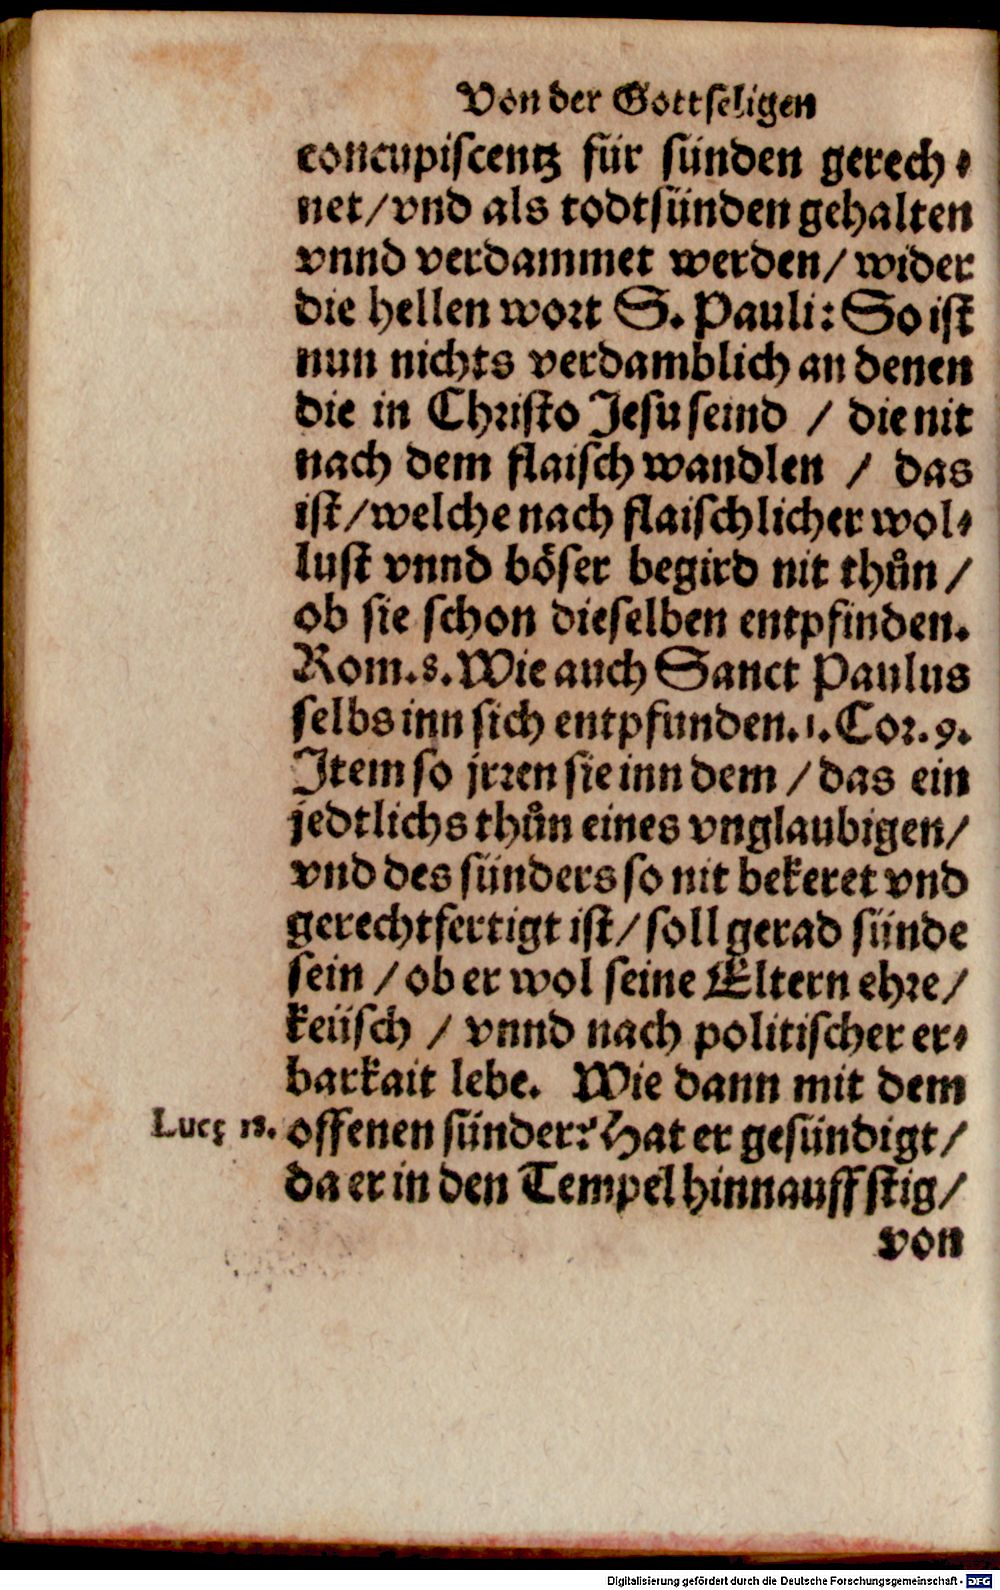 Von der Gottseligen
concupiscentz für sünden gerech⸗
net/vnd als todtsünden gehalten
vnnd verdammet werden/ wider
die hellen wort S. Pauli: So ist
nun nichts verdamblich an denen
die in Christo Jesu seind / die nit
nach dem flaisch wandlen / das
ist/welche nach flaischlicher wol⸗
lust vnnd böser begird nit thůn /
ob sie schon dieselben entpfinden.
Rom.8. Wie auch Sanct Paulus
selbs inn sich entpfunden.1. Cor.9.
Item so jrren sie inn dem / das ein
jedtlichs thůn eines vnglaubigen/
vnd des sünders so nit bekeret vnd
gerechtfertigt ist/ soll gerad sünde
sein / ob er wol seine Eltern ehre/
keüsch / vnnd nach politischer er⸗
barkait lebe. Wie dann mit dem
Lucę 18. offenen sünder? Hat er gesündigt/
da er in den Tempel hinnauff stig/
von
Digitalisierung gefördert durch die Deutsche Forschungsgemeinschaft - DFG